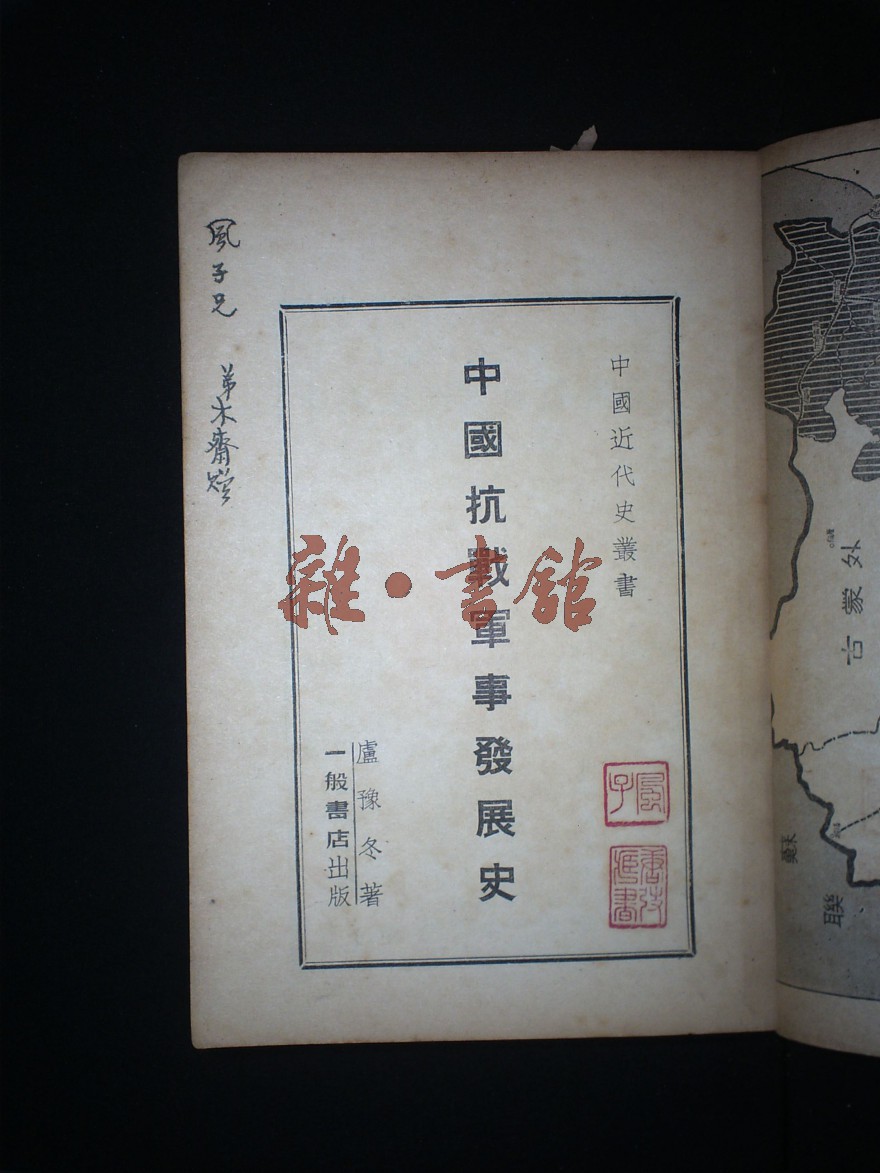 中國近代史叢書
中國抗戰軍事發展史
盧豫冬著
一般書店出版
風子兄
弟木齋贈
雜·書館
風子
唐弢藏書
外蒙古
蘇
聯